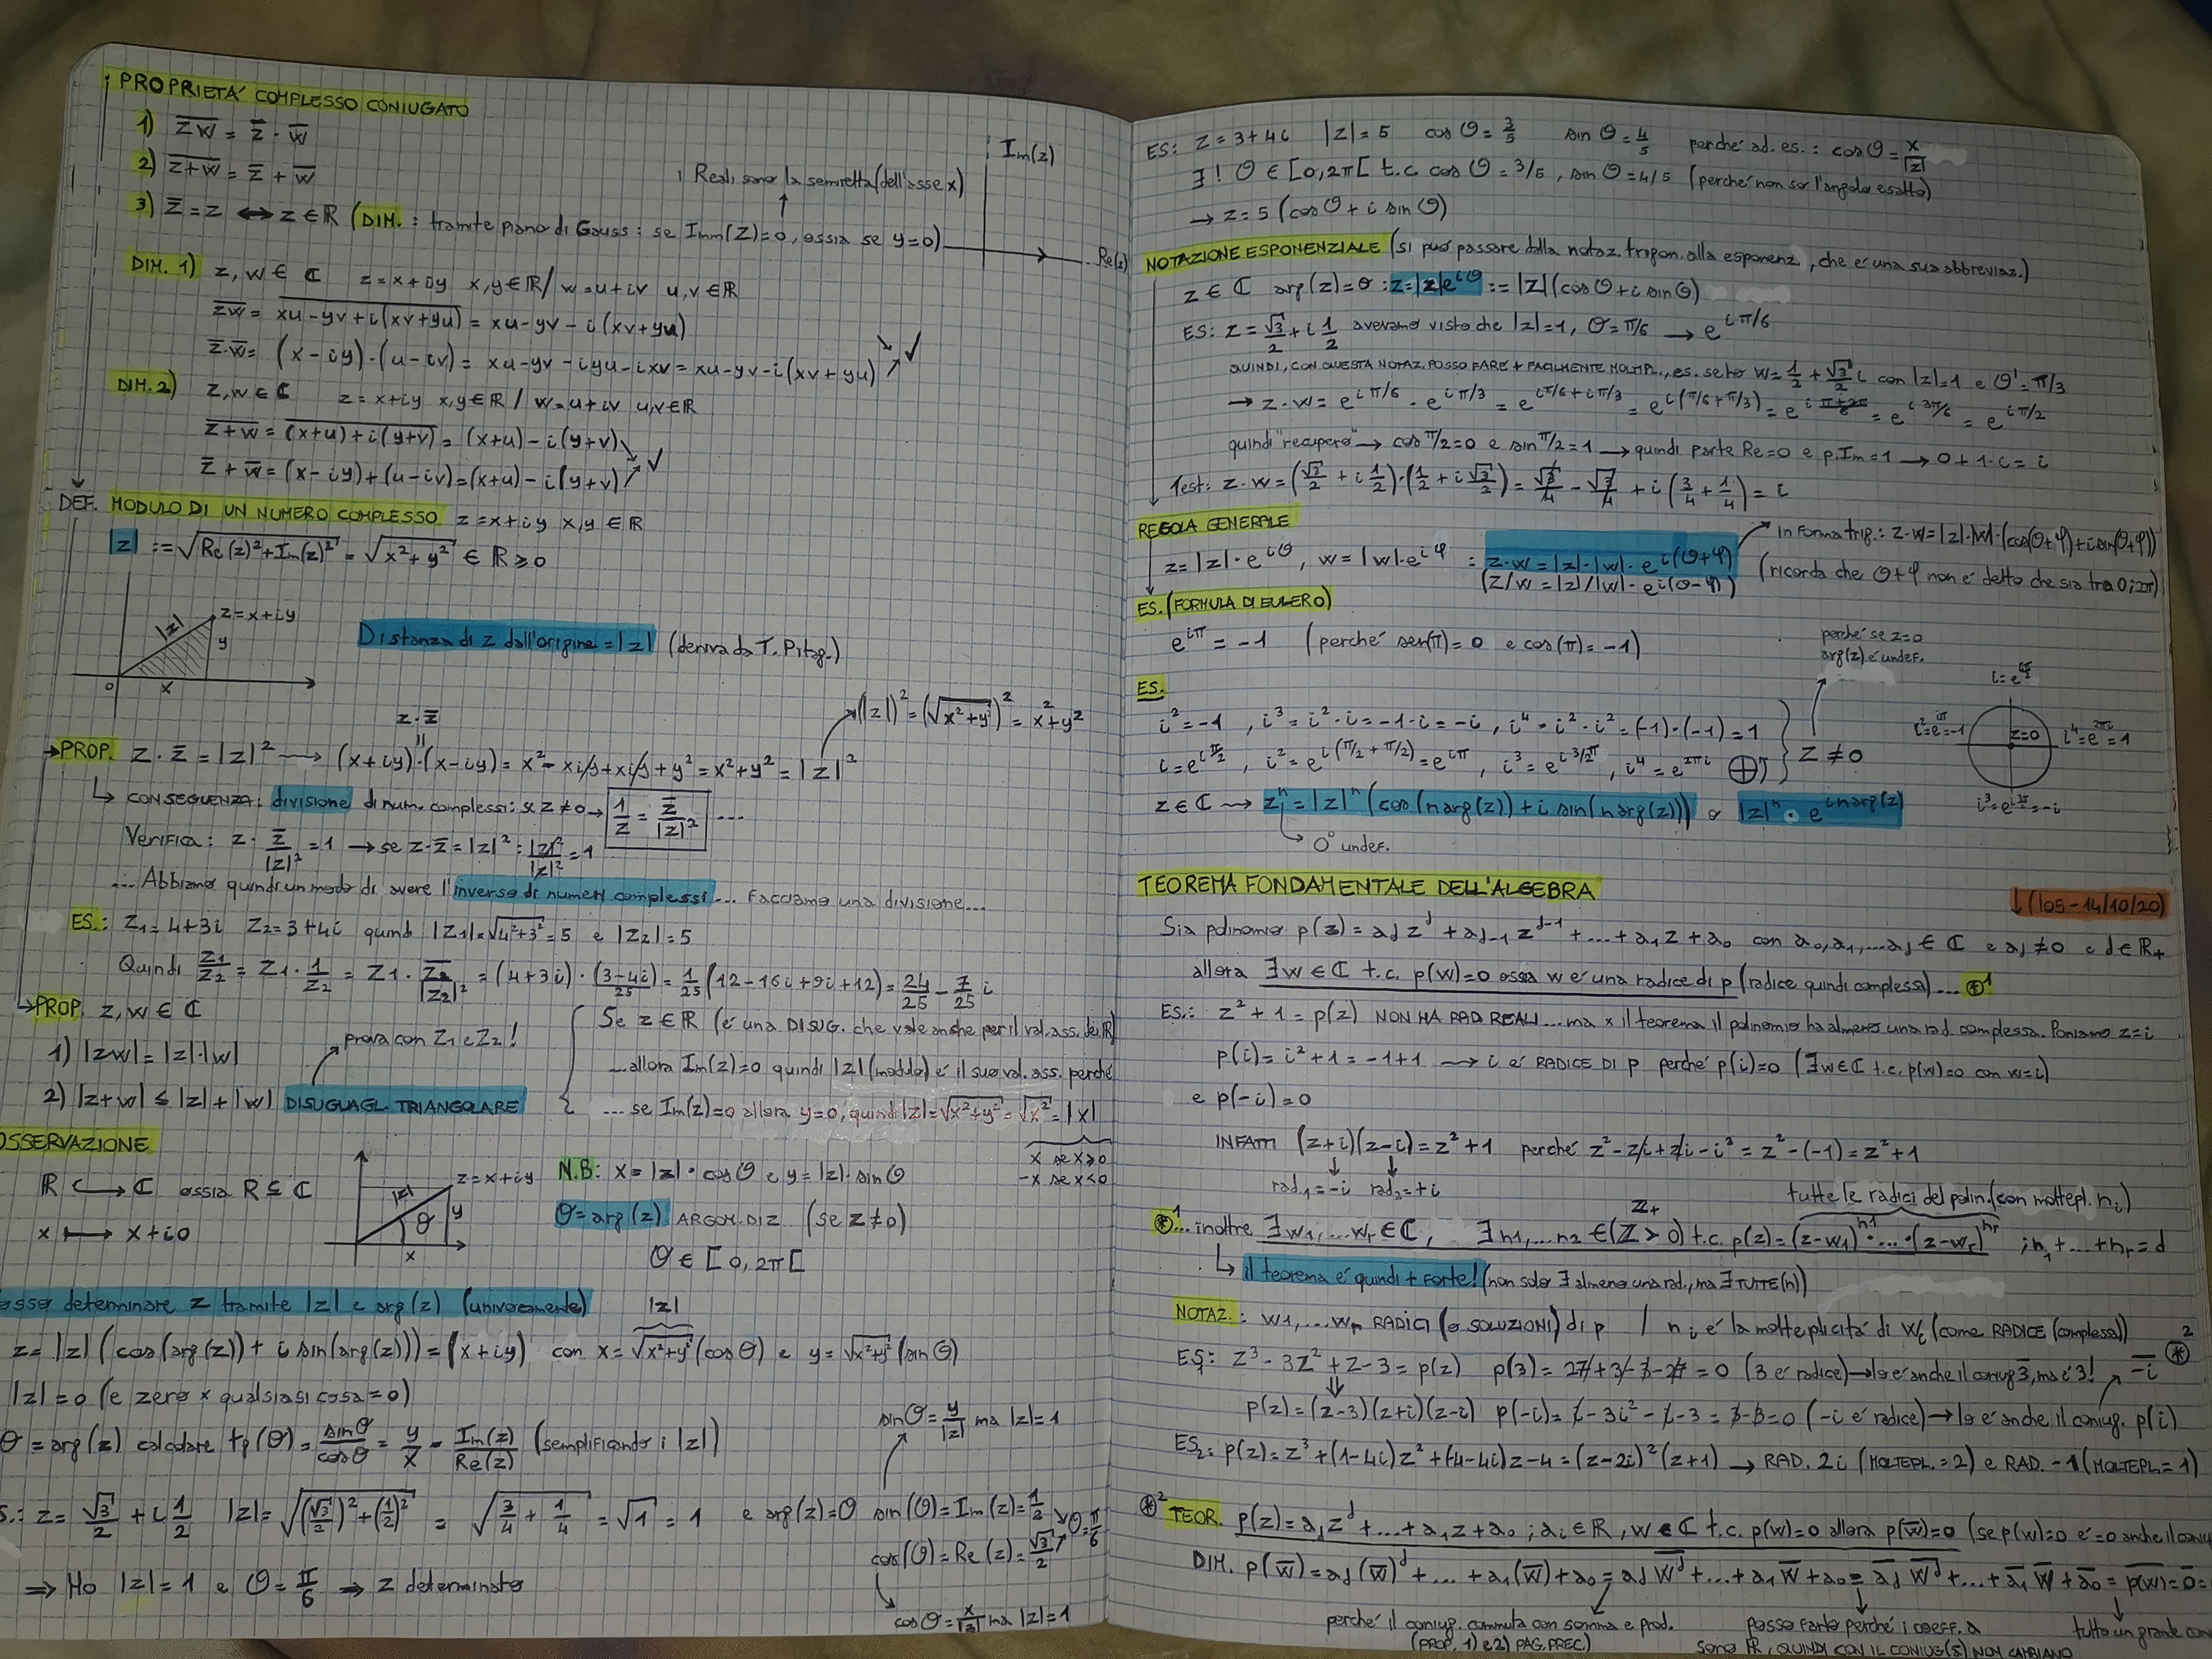 PROPRIETÁ COMPLESSO CONIUGATO
1) \overline{zw} = \bar{z} · \bar{w}
2) \overline{z+w} = \bar{z} + \bar{w}
Reali sono la semiretta (dell'asse x)
Im(z)
3) \bar{z} = z ⟺ z ∈ ℝ (DIM.: tramite piano di Gauss: se Imm(z)=0, ossia se y=0)
Re(z)
DIM. 1) z, w ∈ ℂ z = x+iy x,y ∈ ℝ / w = u+iv u,v ∈ ℝ
\overline{zw} = \overline{xu-yv+i(xv+yu)} = xu-yv-i(xv+yu)
\bar{z}·\bar{w} = (x-iy)·(u-iv) = xu-yv-iyu-ixv = xu-yv-i(xv+yu) ✓
DIM. 2) z,w ∈ ℂ z = x+iy x,y ∈ ℝ / w = u+iv u,v ∈ ℝ
\overline{z+w} = \overline{(x+u)+i(y+v)} = (x+u)-i(y+v)
\bar{z}+\bar{w} = (x-iy)+(u-iv) = (x+u)-i(y+v) ✓
DEF. MODULO DI UN NUMERO COMPLESSO z = x+iy x,y ∈ ℝ
|z| := √(Re(z)²+Im(z)²) = √(x²+y²) ∈ ℝ ≥ 0
|z| z=x+iy
y
0 x
Distanza di z dall'origine = |z| (deriva da T. Pitag.)
z·\bar{z}
(|z|)² = (√(x²+y²))² = x²+y²
→ PROP. z·\bar{z} = |z|² ⟶ (x+iy)·(x-iy) = x²-xiy+xiy+y² = x²+y² = |z|²
↳ CONSEGUENZA: divisione di num. complessi: se z≠0 → 1/z = \bar{z}/|z|² ...
Verifica: z · \bar{z}/|z|² = 1 → se z·\bar{z} = |z|² : |z|²/|z|² = 1
... Abbiamo quindi un modo di avere l'inverso di numeri complessi ... facciamo una divisione...
ES.: z₁ = 4+3i z₂ = 3+4i quindi |z₁| = √(4²+3²) = 5 e |z₂| = 5
Quindi z₁/z₂ = z₁ · 1/z₂ = z₁ · \bar{z₂}/|z₂|² = (4+3i)·(3-4i)/25 = 1/25 (12-16i+9i+12) = 24/25 - 7/25 i
→ PROP. z, w ∈ ℂ
1) |zw| = |z|·|w|
prova con z₁ e z₂!
2) |z+w| ≤ |z|+|w| DISUGUAGL. TRIANGOLARE
Se z ∈ ℝ (é una DISUG. che vale anche per il val. ass. dei ℝ)
...allora Im(z)=0 quindi |z| (modulo) é il suo val. ass. perché
... se Im(z)=0 allora y=0, quindi |z| = √(x²+y²) = √x² = |x|
x se x≥0
-x se x<0
OSSERVAZIONE
ℝ ↪ ℂ ossia ℝ ⊆ ℂ
x ⟼ x+i0
|z| z=x+iy
θ y
x
N.B: x = |z|·cosθ e y = |z|·sinθ
θ = arg(z) ARGOM. DI Z (se z≠0)
θ ∈ [0, 2π[
osso determinare z tramite |z| e arg(z) (univocamente)
|z|
z = |z| (cos(arg(z)) + i sin(arg(z))) = (x+iy) con x = √(x²+y²) (cosθ) e y = √(x²+y²) (sinθ)
|z| = 0 (e zero × qualsiasi cosa = 0)
θ = arg(z) calcolare tg(θ) = sinθ/cosθ = y/x = Im(z)/Re(z) (semplificando i |z|)
sinθ = y/|z| ma |z|=1
S.: z = √3/2 + i 1/2 |z| = √((√3/2)²+(1/2)²) = √(3/4+1/4) = √1 = 1 e arg(z)=θ sin(θ) = Im(z) = 1/2
θ = π/6
cos(θ) = Re(z) = √3/2
⇒ Ho |z|=1 e θ = π/6 ⇒ z determinato
cosθ = x/|z| ma |z|=1
ES: z = 3+4i |z| = 5 cosθ = 3/5 sinθ = 4/5 perché ad. es.: cosθ = x/|z|
∃! θ ∈ [0,2π[ t.c. cosθ = 3/5, sinθ = 4/5 (perché non so l'angolo esatto)
→ z = 5 (cosθ + i sinθ)
NOTAZIONE ESPONENZIALE (si puó passare dalla notaz. trigon. alla esponenz, che é una sua abbreviaz.)
z ∈ ℂ arg(z) = θ : z = |z|e^{iθ} := |z|(cosθ + i sinθ)
ES: z = √3/2 + i 1/2 avevamo visto che |z|=1, θ=π/6 → e^{iπ/6}
QUINDI, CON QUESTA NOTAZ. POSSO FARE + FACILMENTE MOLTIPL., es. se ho w = 1/2 + √3/2 i con |z|=1 e θ' = π/3
→ z·w = e^{iπ/6} · e^{iπ/3} = e^{iπ/6+iπ/3} = e^{i(π/6+π/3)} = e^{i (π+2π)/6} = e^{i3π/6} = e^{iπ/2}
quindi "recupero" → cos π/2 = 0 e sin π/2 = 1 → quindi parte Re=0 e p. Im=1 → 0+1·i = i
Test: z·w = (√3/2 + i 1/2)·(1/2 + i √3/2) = √3/4 - √3/4 + i (3/4 + 1/4) = i
REGOLA GENERALE
in forma trig.: z·w = |z|·|w|·(cos(θ+φ)+i sin(θ+φ))
z = |z|·e^{iθ}, w = |w|·e^{iφ} : z·w = |z|·|w|·e^{i(θ+φ)}
(z/w = |z|/|w|·e^{i(θ-φ)})
(ricorda che θ+φ non é detto che sia tra 0;2π)
ES. (FORMULA DI EULERO)
e^{iπ} = -1 (perché sen(π) = 0 e cos(π) = -1)
perché se z=0
arg(z) é undef.
ES.
i² = -1, i³ = i²·i = -1·i = -i, i⁴ = i²·i² = (-1)·(-1) = 1
i = e^{iπ/2}, i² = e^{i(π/2+π/2)} = e^{iπ}, i³ = e^{i3/2π}, i⁴ = e^{2πi}
z ≠ 0
i = e^{iπ/2}
i² = e^{iπ} = -1 z=0 i⁴ = e^{2πi} = 1
i³ = e^{i3π/2} = -i
z ∈ ℂ ⟶ zⁿ = |z|ⁿ (cos(n arg(z)) + i sin(n arg(z))) o |z|ⁿ · e^{i n arg(z)}
0⁰ undef.
TEOREMA FONDAMENTALE DELL'ALGEBRA
↓(l05-14/10/20)
Sia polinomio p(z) = a_d z^d + a_{d-1} z^{d-1} + ... + a₁z + a₀ con a₀, a₁, ... a_d ∈ ℂ e a_d ≠ 0 e d ∈ ℝ₊
allora ∃w ∈ ℂ t.c. p(w)=0 ossia w é una radice di p (radice quindi complessa) .... ⊛¹
ES.: z²+1 = p(z) NON HA RAD REALI ... ma × il teorema il polinomio ha almeno una rad. complessa. Poniamo z=i
p(i) = i²+1 = -1+1 ⟶ i é RADICE DI p perché p(i)=0 (∃w∈ℂ t.c. p(w)=0 con w=i)
e p(-i)=0
INFATTI (z+i)(z-i) = z²+1 perché z²-zi+zi-i² = z²-(-1) = z²+1
rad₁=-i rad₂=+i
ℤ₊
tutte le radici del polin. (con moltepl. nᵢ)
⊛¹... inoltre ∃w₁,...wᵣ ∈ ℂ, ∃n1,...n2 ∈ (ℤ>0) t.c. p(z) = (z-w₁)^{n1}·...·(z-wᵣ)^{nr} ; n₁+...+nᵣ = d
↳ il teorema é quindi + forte! (non solo ∃ almeno una rad., ma ∃ TUTTE(n))
NOTAZ.: w1,...wₙ RADICI (o SOLUZIONI) di p / nᵢ é la molteplicitá di wᵢ (come RADICE (complessa))
ES: z³-3z²+z-3 = p(z) p(3) = 27+3-3-27 = 0 (3 é radice) → lo é anche il coniug \bar{3}, ma é 3! \overline{-i} ⊛²
p(z) = (z-3)(z+i)(z-i) p(-i) = i-3i²-i-3 = 3-3=0 (-i é radice) → lo é anche il coniug. p(i)
ES₂: p(z) = z³+(1-4i)z²+(-4-4i)z-4 = (z-2i)²(z+1) → RAD. 2i (MOLTEPL.=2) e RAD. -1 (MOLTEPL=1)
⊛² TEOR. p(z) = a_d z^d+...+a₁z+a₀ ; aᵢ ∈ ℝ, w ∈ ℂ t.c. p(w)=0 allora p(\bar{w})=0 (se p(w)=0 é =0 anche il coniu
DIM. p(\bar{w}) = a_d(\bar{w})^d+...+a₁(\bar{w})+a₀ = a_d \overline{w^d}+...+a₁\bar{w}+a₀ = \bar{a_d} \overline{w^d}+...+\bar{a₁} \bar{w}+\bar{a₀} = \overline{p(w)} = \bar{0} =
perché il coniug. commuta con somma e prod.
(PROP. 1) e 2) PAG. PREC.)
posso farlo perché i coeff. a
sono ℝ, QUINDI CON IL CONIUG(S) NON CAMBIANO
tutto un grande con